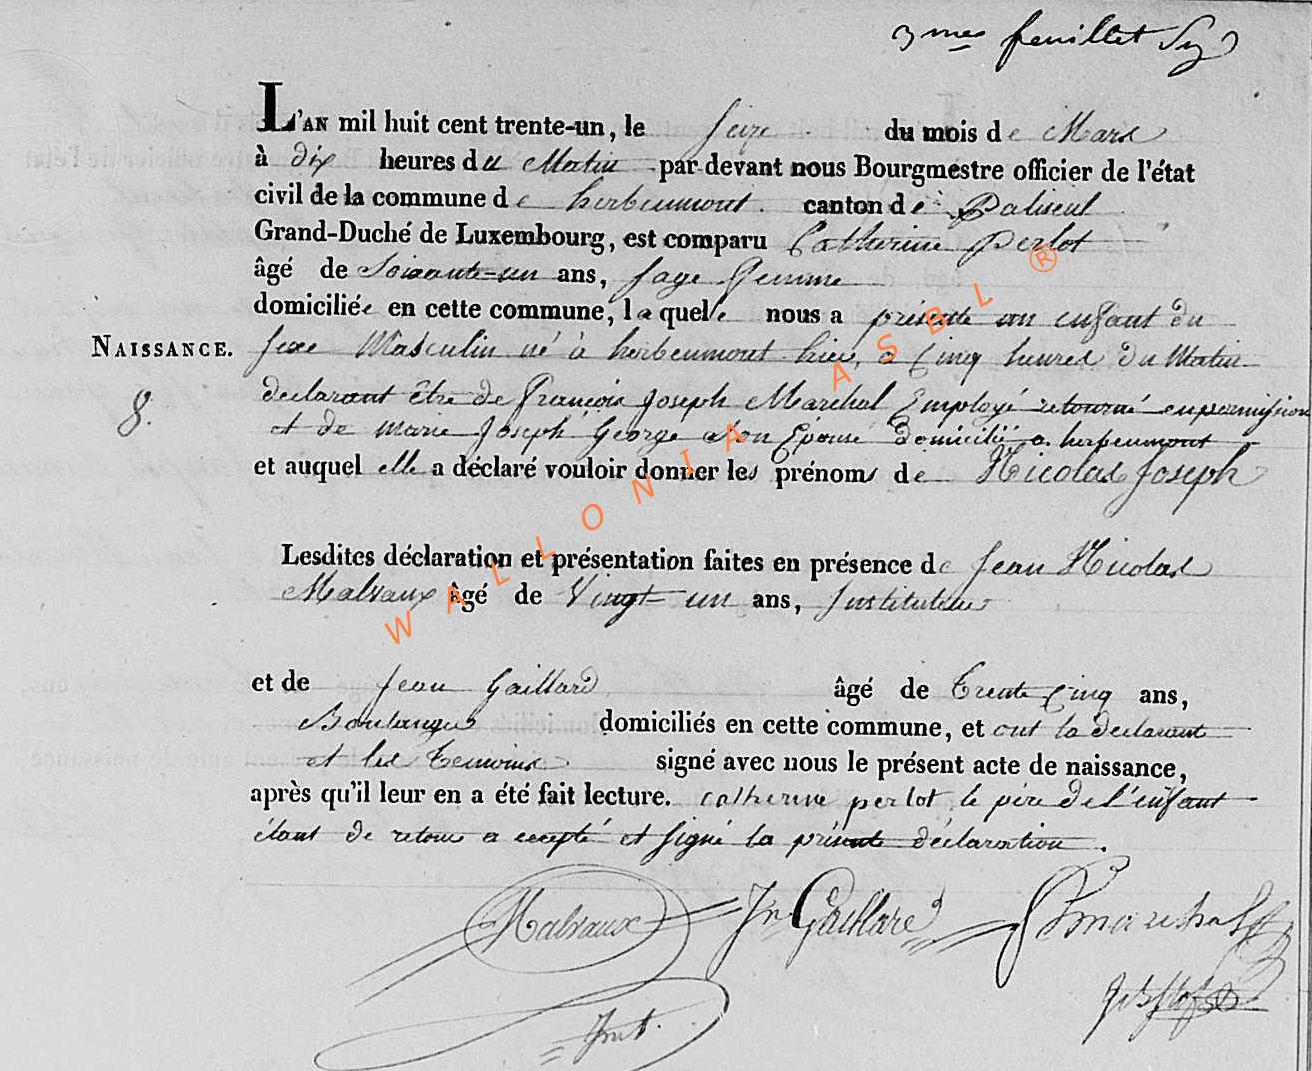 3mes feuillet
L'AN mil huit cent trente-un, le seize du mois de Mars
à dix heures du Matin par devant nous Bourgmestre officier de l'état
civil de la commune de herbeumont. canton de Paliseul
Grand-Duché de Luxembourg, est comparu Catherine Perlot
âgé de Soixante-un ans, sage femme
domiciliée en cette commune, laquelle nous a présenté un enfant du
NAISSANCE. sexe Masculin né à herbeumont hier, à Cinq heures du Matin
8. declarant être de François Joseph Marchal Employé retourné en permission
et de marie Joseph George son Epouse domicilié a herbeumont
et auquel elle a déclaré vouloir donner les prénoms de Nicolas Joseph
Lesdites déclaration et présentation faites en présence de Jean Nicolas
Malvaux âgé de Vingt un ans, Instituteur
et de Jean Gaillard âgé de Trente Cinq ans,
Boulanger domiciliés en cette commune, et ont la declarant
et les Temoins signé avec nous le présent acte de naissance,
après qu'il leur en a été fait lecture. catherine perlot, le père de l'enfant
étant de retour a accepté et signé la présente déclaration.
Malvaux Jn Gaillard Marchal
WALLONIA ASBL ®